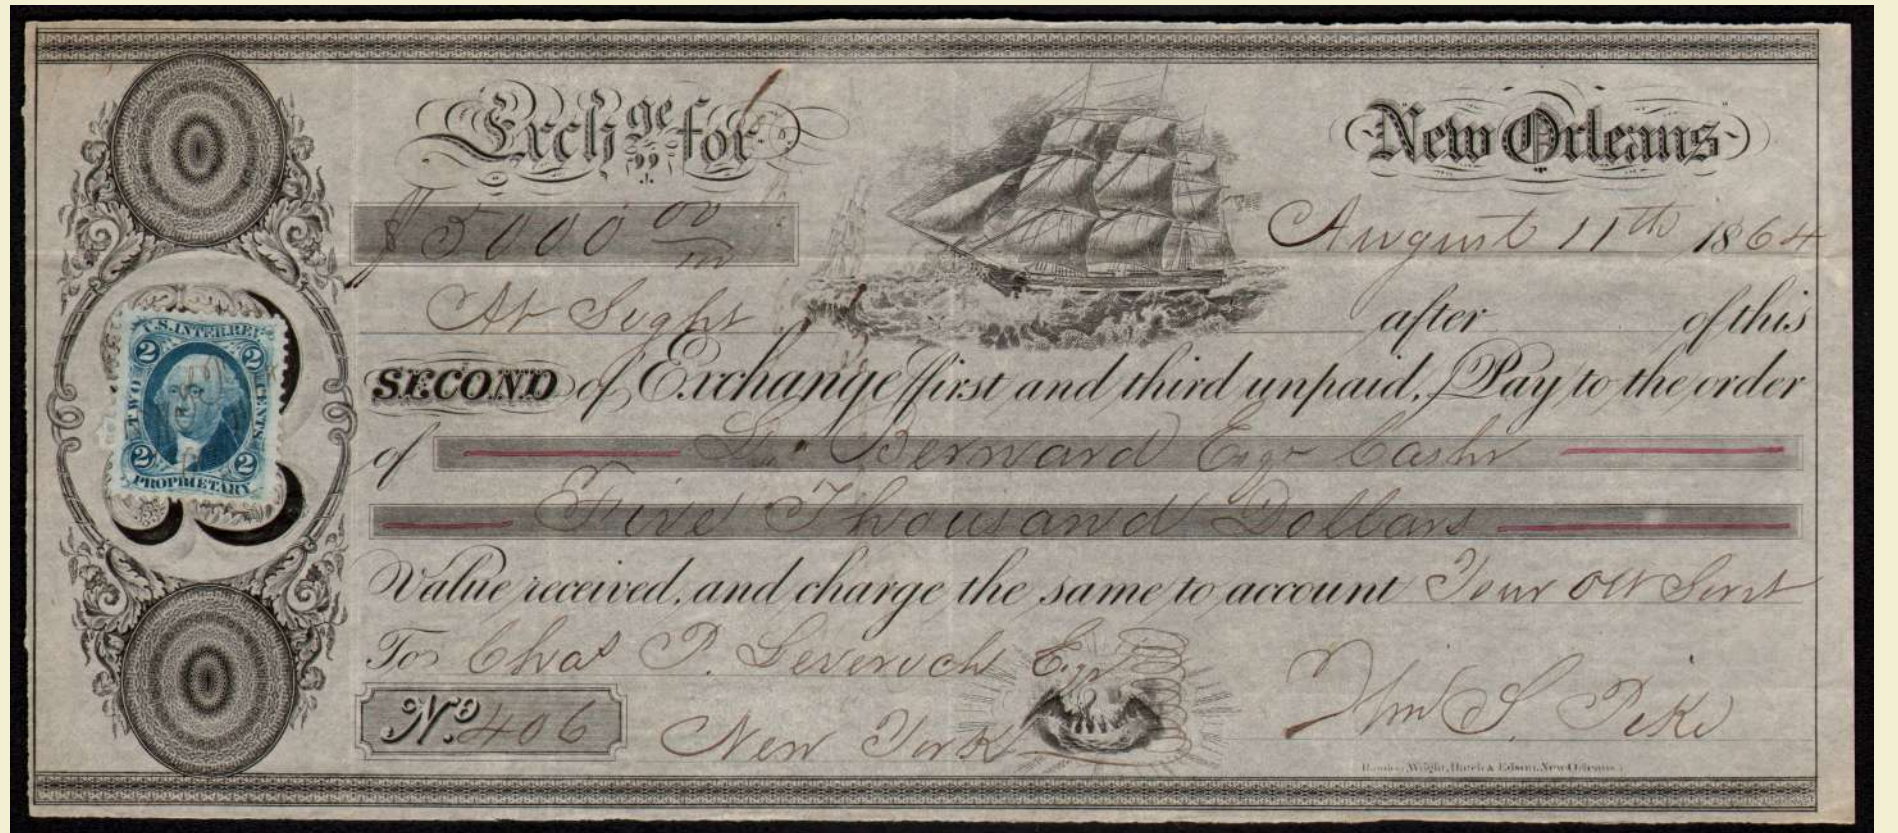 Exchge for
New Orleans
$5000 00/100
August 11th 1864
At Sight after of this
SECOND of Exchange first and third unpaid, Pay to the order
of Bernard Esqr Cashr
Five Thousand Dollars
Value received, and charge the same to account Your Obt Servt
To Chas P. Leverich Esqr
Wm S. Pike
No. 406 New York
Wright, Hatch & Edson, New Orleans.
U.S. INTER. REV.
2 2
TWO CENTS
2 2
PROPRIETARY